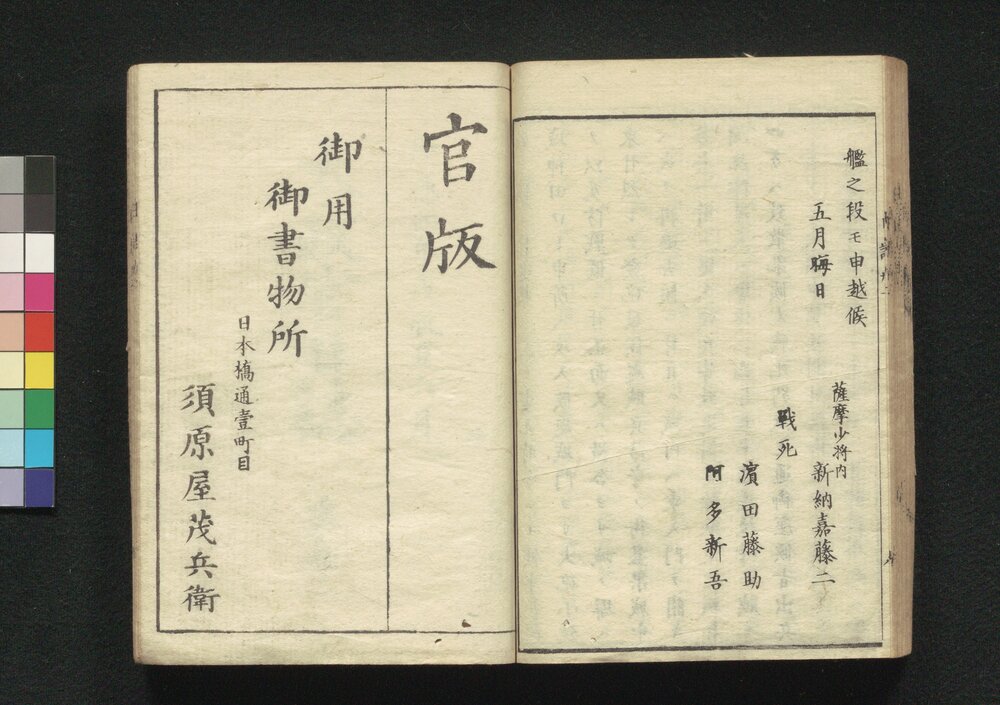 艦之段モ申越候
五月晦日
薩摩少将内
新納嘉藤二
戰死
濱田藤助
阿多新吾
官版
御用
御書物所
日本橋通壹町目
須原屋茂兵衛